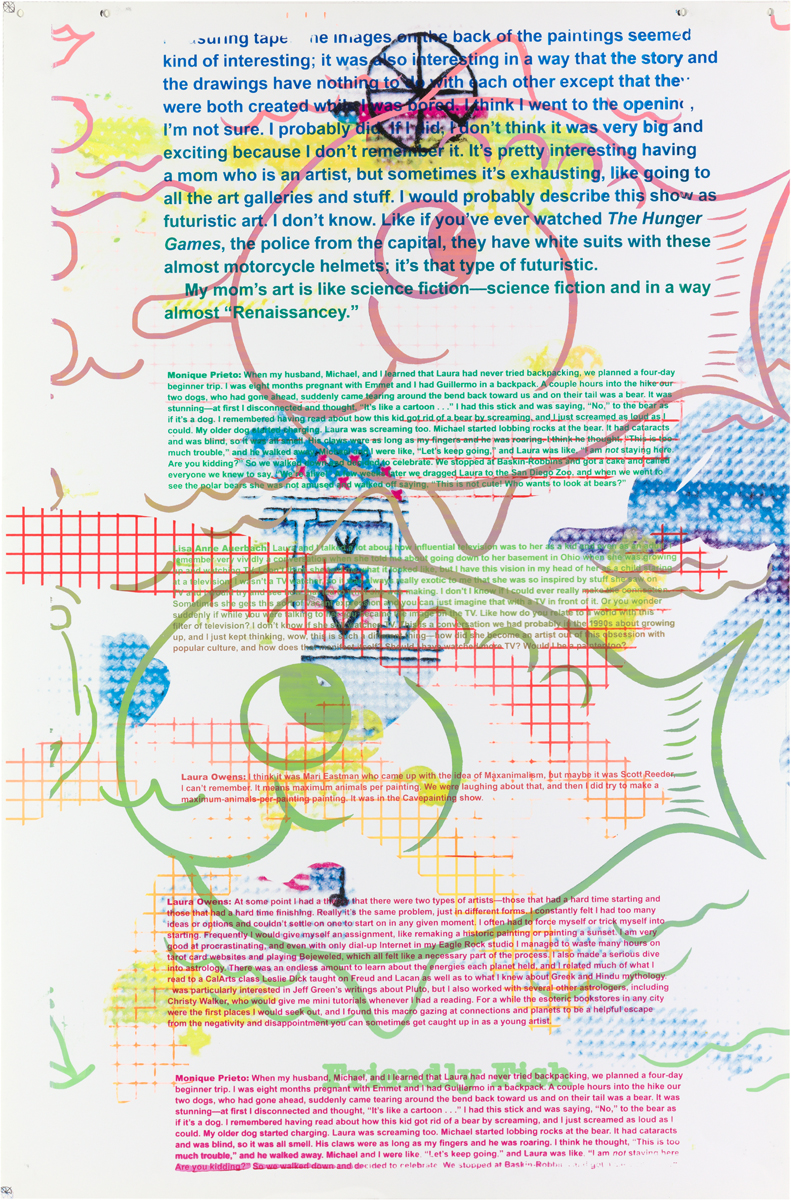 suring tape he images on the back of the paintings seemed
kind of interesting; it was also interesting in a way that the story and
the drawings have nothing to do with each other except that they
were both created while I was bored. I think I went to the opening,
I'm not sure. I probably did. If I did, I don't think it was very big and
exciting because I don't remember it. It's pretty interesting having
a mom who is an artist, but sometimes it's exhausting, like going to
all the art galleries and stuff. I would probably describe this show as
futuristic art. I don't know. Like if you've ever watched The Hunger
Games, the police from the capital, they have white suits with these
almost motorcycle helmets; it's that type of futuristic.
My mom's art is like science fiction—science fiction and in a way
almost “Renaissancey.”
Monique Prieto: When my husband, Michael, and I learned that Laura had never tried backpacking, we planned a four-day
beginner trip. I was eight months pregnant with Emmet and I had Guillermo in a backpack. A couple hours into the hike our
two dogs, who had gone ahead, suddenly came tearing around the bend back toward us and on their tail was a bear. It was
stunning—at first I disconnected and thought, “It's like a cartoon . . .” I had this stick and was saying, “No,” to the bear as
if it's a dog. I remembered having read about how this kid got rid of a bear by screaming, and I just screamed as loud as I
could. My older dog started charging. Laura was screaming too. Michael started lobbing rocks at the bear. It had cataracts
and was blind, so it was all smell. His claws were as long as my fingers and he was roaring. I think he thought, “This is too
much trouble,” and he walked away. Michael and I were like, “Let's keep going,” and Laura was like, “I am not staying here
Are you kidding?” So we walked down and decided to celebrate. We stopped at Baskin-Robbins and got a cake and called
everyone we knew to say, later we dragged Laura to the San Diego Zoo, and when we went to
see the polar bears she was not amused and walked off saying, “This is not cute! Who wants to look at bears?”
Lisa Anne Auerbach: Laura and I talked a lot about how influential television was to her as a
remember very vividly a conversation she told me about going down to her basement in Ohio when she was growing
but I have this vision in my head of her as a child
at a television. I wasn't a TV really exotic to me that she was so inspired by stuff she
making. I don't know if I could ever really make the connection.
you can just imagine that with a TV in front of it. Or you wonder
suddenly if while you were talking to her
filter of television? I don't know if this is a conversation we had probably in the 1990s about growing
up, and I just kept thinking, wow, this is such a thing—how did she become an artist out of this obsession with
popular culture, and how does that Should I have watched more TV? Would I be a painter too?
Laura Owens: I think it was Mari Eastman who came up with the idea of Maxanimalism, but maybe it was Scott Reeder,
I can't remember. It means maximum animals per painting. We were laughing about that, and then I did try to make a
maximum-animals-per-painting painting. It was in the Cavepainting show.
Laura Owens: At some point I had a theory that there were two types of artists—those that had a hard time starting and
those that had a hard time finishing. Really it's the same problem, just in different forms. I constantly felt I had too many
ideas or options and couldn't settle on one to start on in any given moment. I often had to force myself or trick myself into
starting. Frequently I would give myself an assignment, like remaking a historic painting or painting a sunset. I am very
good at procrastinating, and even with only dial-up Internet in my Eagle Rock studio I managed to waste many hours on
tarot card websites and playing Bejeweled, which all felt like a necessary part of the process. I also made a serious dive
into astrology. There was an endless amount to learn about the energies each planet held, and I related much of what I
read to a CalArts class Leslie Dick taught on Freud and Lacan as well as to what I knew about Greek and Hindu mythology.
I was particularly interested in Jeff Green's writings about Pluto, but I also worked with several other astrologers, including
Christy Walker, who would give me mini tutorials whenever I had a reading. For a while the esoteric bookstores in any city
were the first places I would seek out, and I found this macro gazing at connections and planets to be a helpful escape
from the negativity and disappointment you can sometimes get caught up in as a young artist.
Friendly Fish
Monique Prieto: When my husband, Michael, and I learned that Laura had never tried backpacking, we planned a four-day
beginner trip. I was eight months pregnant with Emmet and I had Guillermo in a backpack. A couple hours into the hike our
two dogs, who had gone ahead, suddenly came tearing around the bend back toward us and on their tail was a bear. It was
stunning—at first I disconnected and thought, “It's like a cartoon . . .” I had this stick and was saying, “No,” to the bear as
if it's a dog. I remembered having read about how this kid got rid of a bear by screaming, and I just screamed as loud as I
could. My older dog started charging. Laura was screaming too. Michael started lobbing rocks at the bear. It had cataracts
and was blind, so it was all smell. His claws were as long as my fingers and he was roaring. I think he thought, “This is too
much trouble,” and he walked away. Michael and I were like, “Let's keep going,” and Laura was like, “I am not staying here
Are you kidding?” So we walked down and decided to celebrate. We stopped at Baskin-Robbins